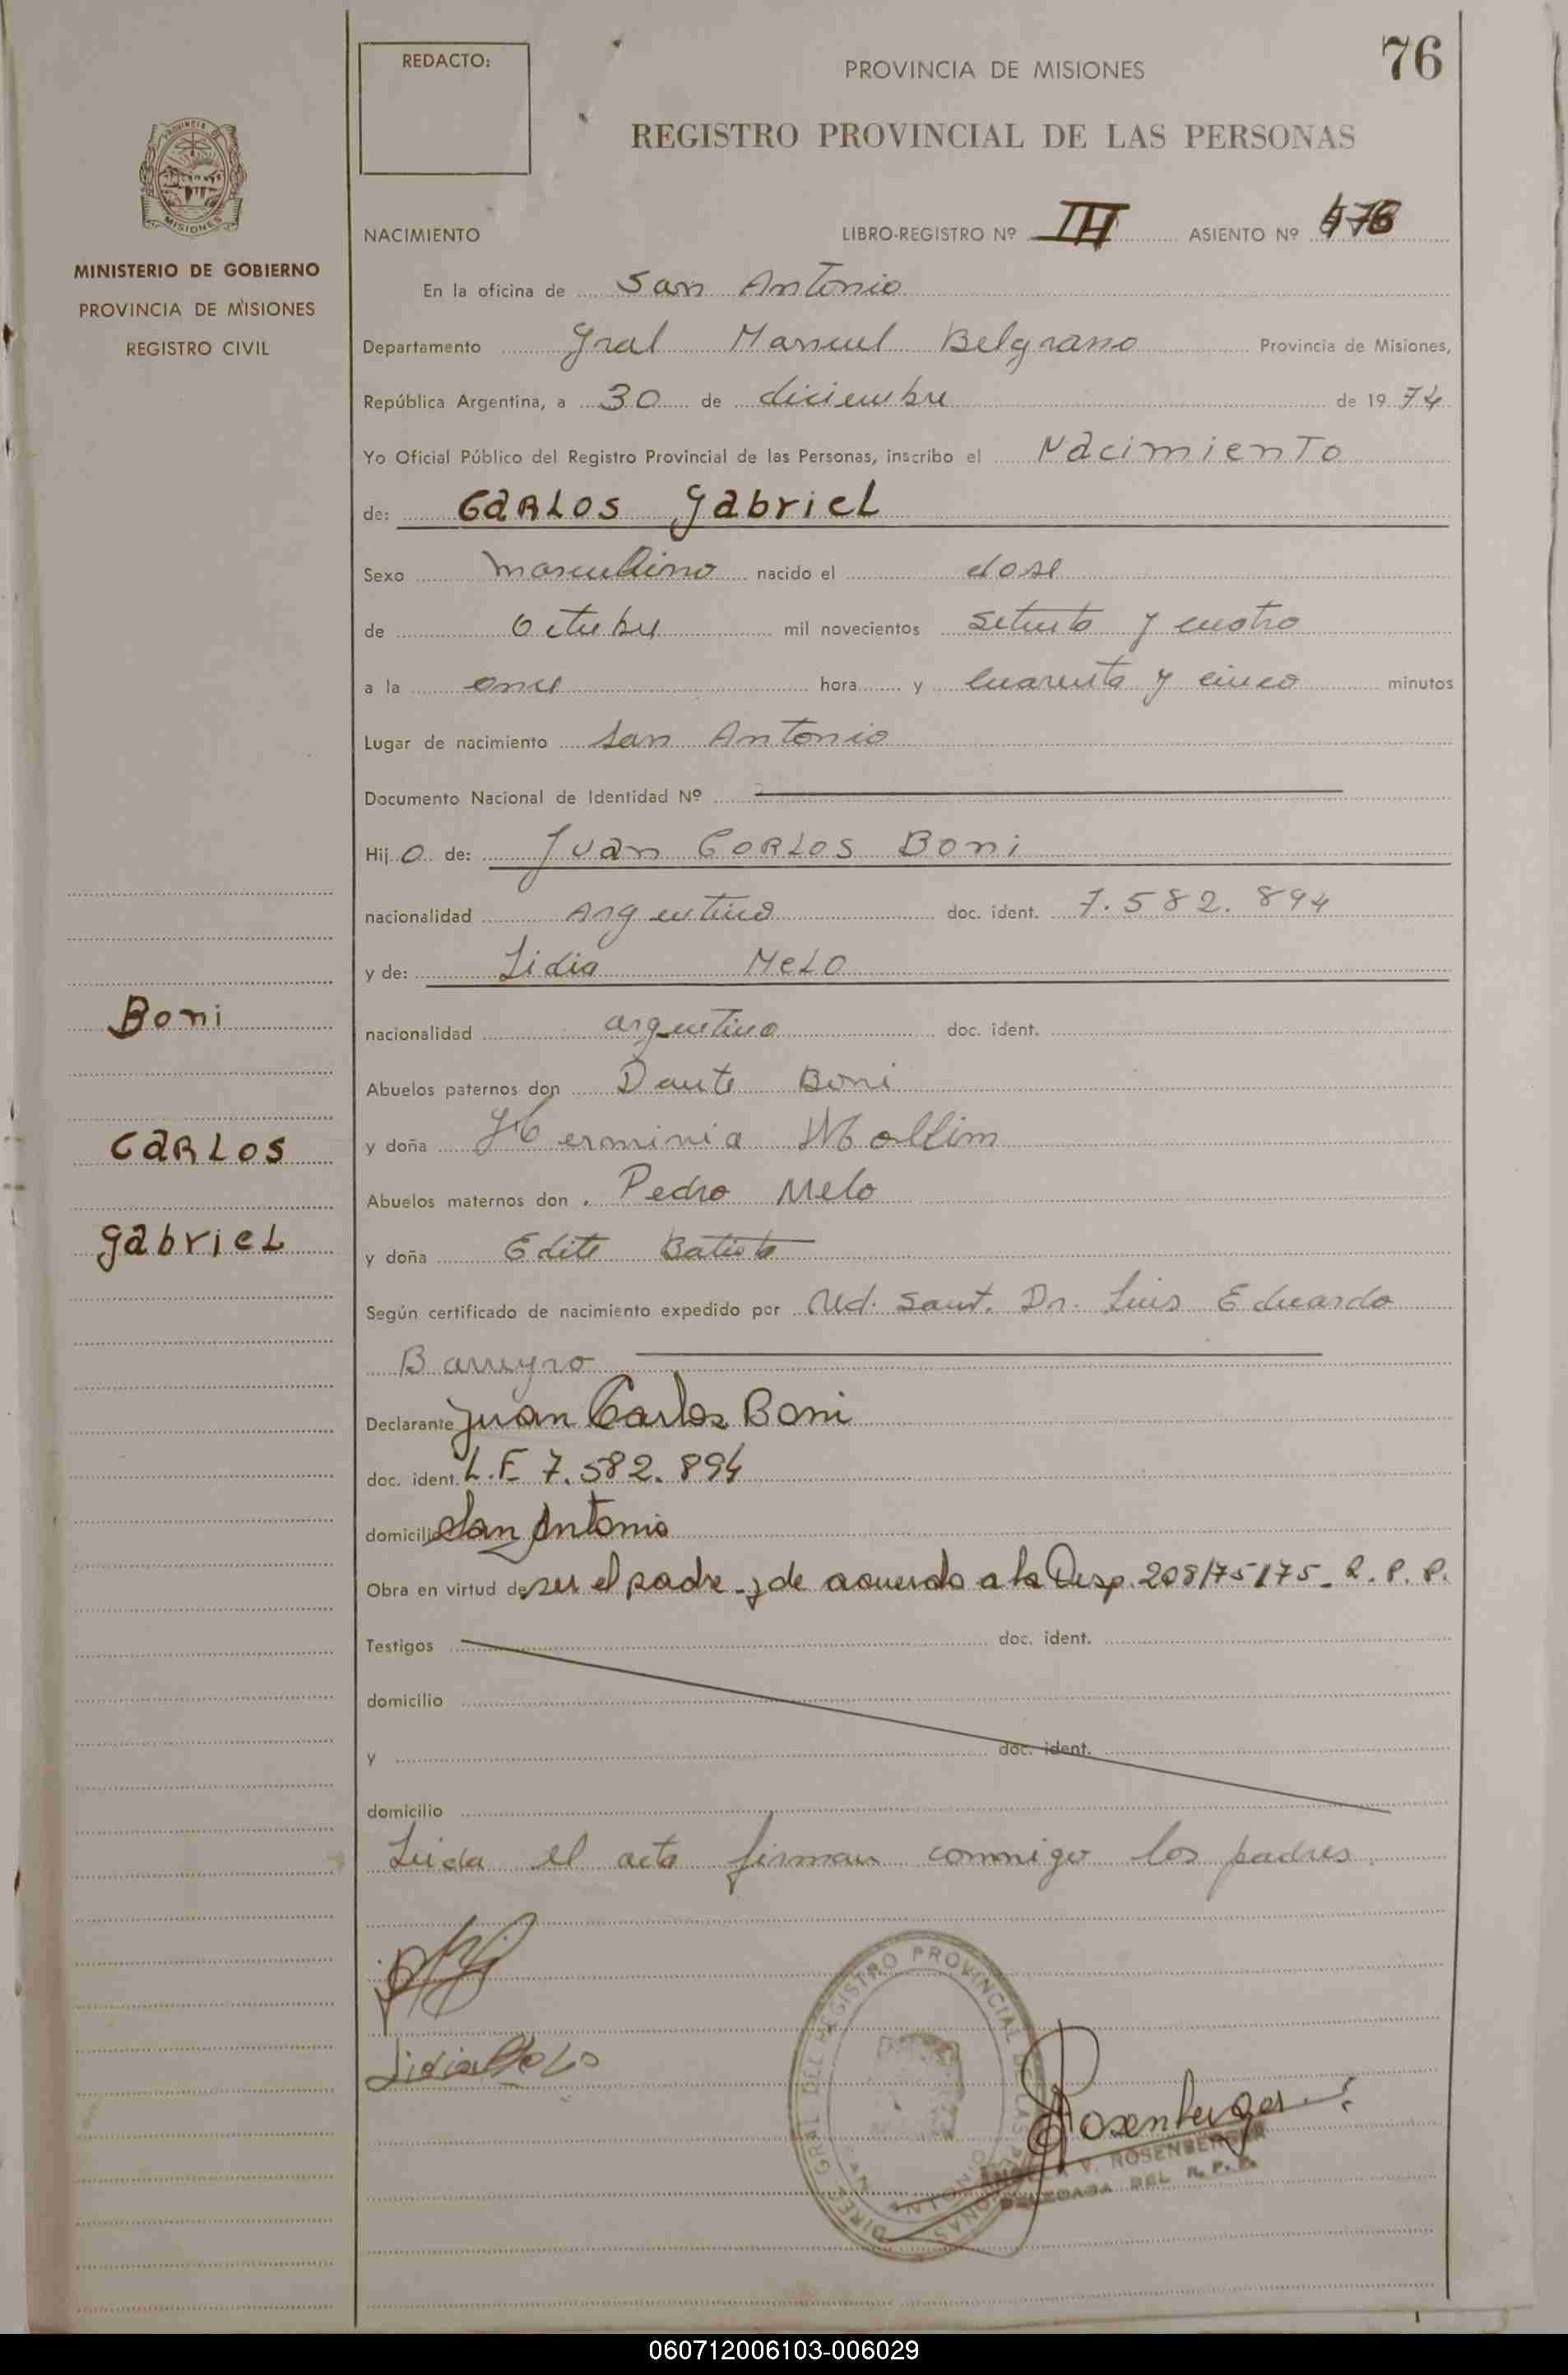 76
REDACTO:
PROVINCIA DE MISIONES
REGISTRO PROVINCIAL DE LAS PERSONAS
MISIONES
MINISTERIO DE GOBIERNO
PROVINCIA DE MISIONES
REGISTRO CIVIL
NACIMIENTO LIBRO-REGISTRO Nº III ASIENTO Nº
En la oficina de San Antonio
Departamento Gral Manuel Belgrano Provincia de Misiones,
República Argentina, a 30 de diciembre de 19 74
Yo Oficial Público del Registro Provincial de las Personas, inscribo el Nacimiento
de: CARLOS gabriel
Sexo masculino nacido el dose
de Octubre mil novecientos setenta y cuatro
a la once hora y cuarenta y cinco minutos
Lugar de nacimiento San Antonio
Documento Nacional de Identidad Nº
Hij o de: Juan CARLOS Boni
nacionalidad Argentina doc. ident. 7.582.894
y de: Lidia MeLO
nacionalidad argentina doc. ident.
Abuelos paternos don Dante Boni
y doña Herminia
Abuelos maternos don Pedro Melo
y doña Edite Batista
Según certificado de nacimiento expedido por Ud. Sant. Dr. Luis Eduardo
Barreyro
Declarante Juan Carlos Boni
doc. ident. L.E 7.582.894
domicilio San Antonio
Obra en virtud de ser el padre y de acuerdo a la Disp. 208/75/75_ R.P.P.
Testigos doc. ident.
domicilio
y doc. ident.
domicilio
Leida el acta firman conmigo los padres.
Boni
CARLOS
gabrieL
Lidia Melo
DIREC. GRAL. DEL REGISTRO PROVINCIAL DE LAS PERSONAS
Rosenberger
V. ROSENBERGER
DELEGADA DEL R. P. P.
060712006103-006029